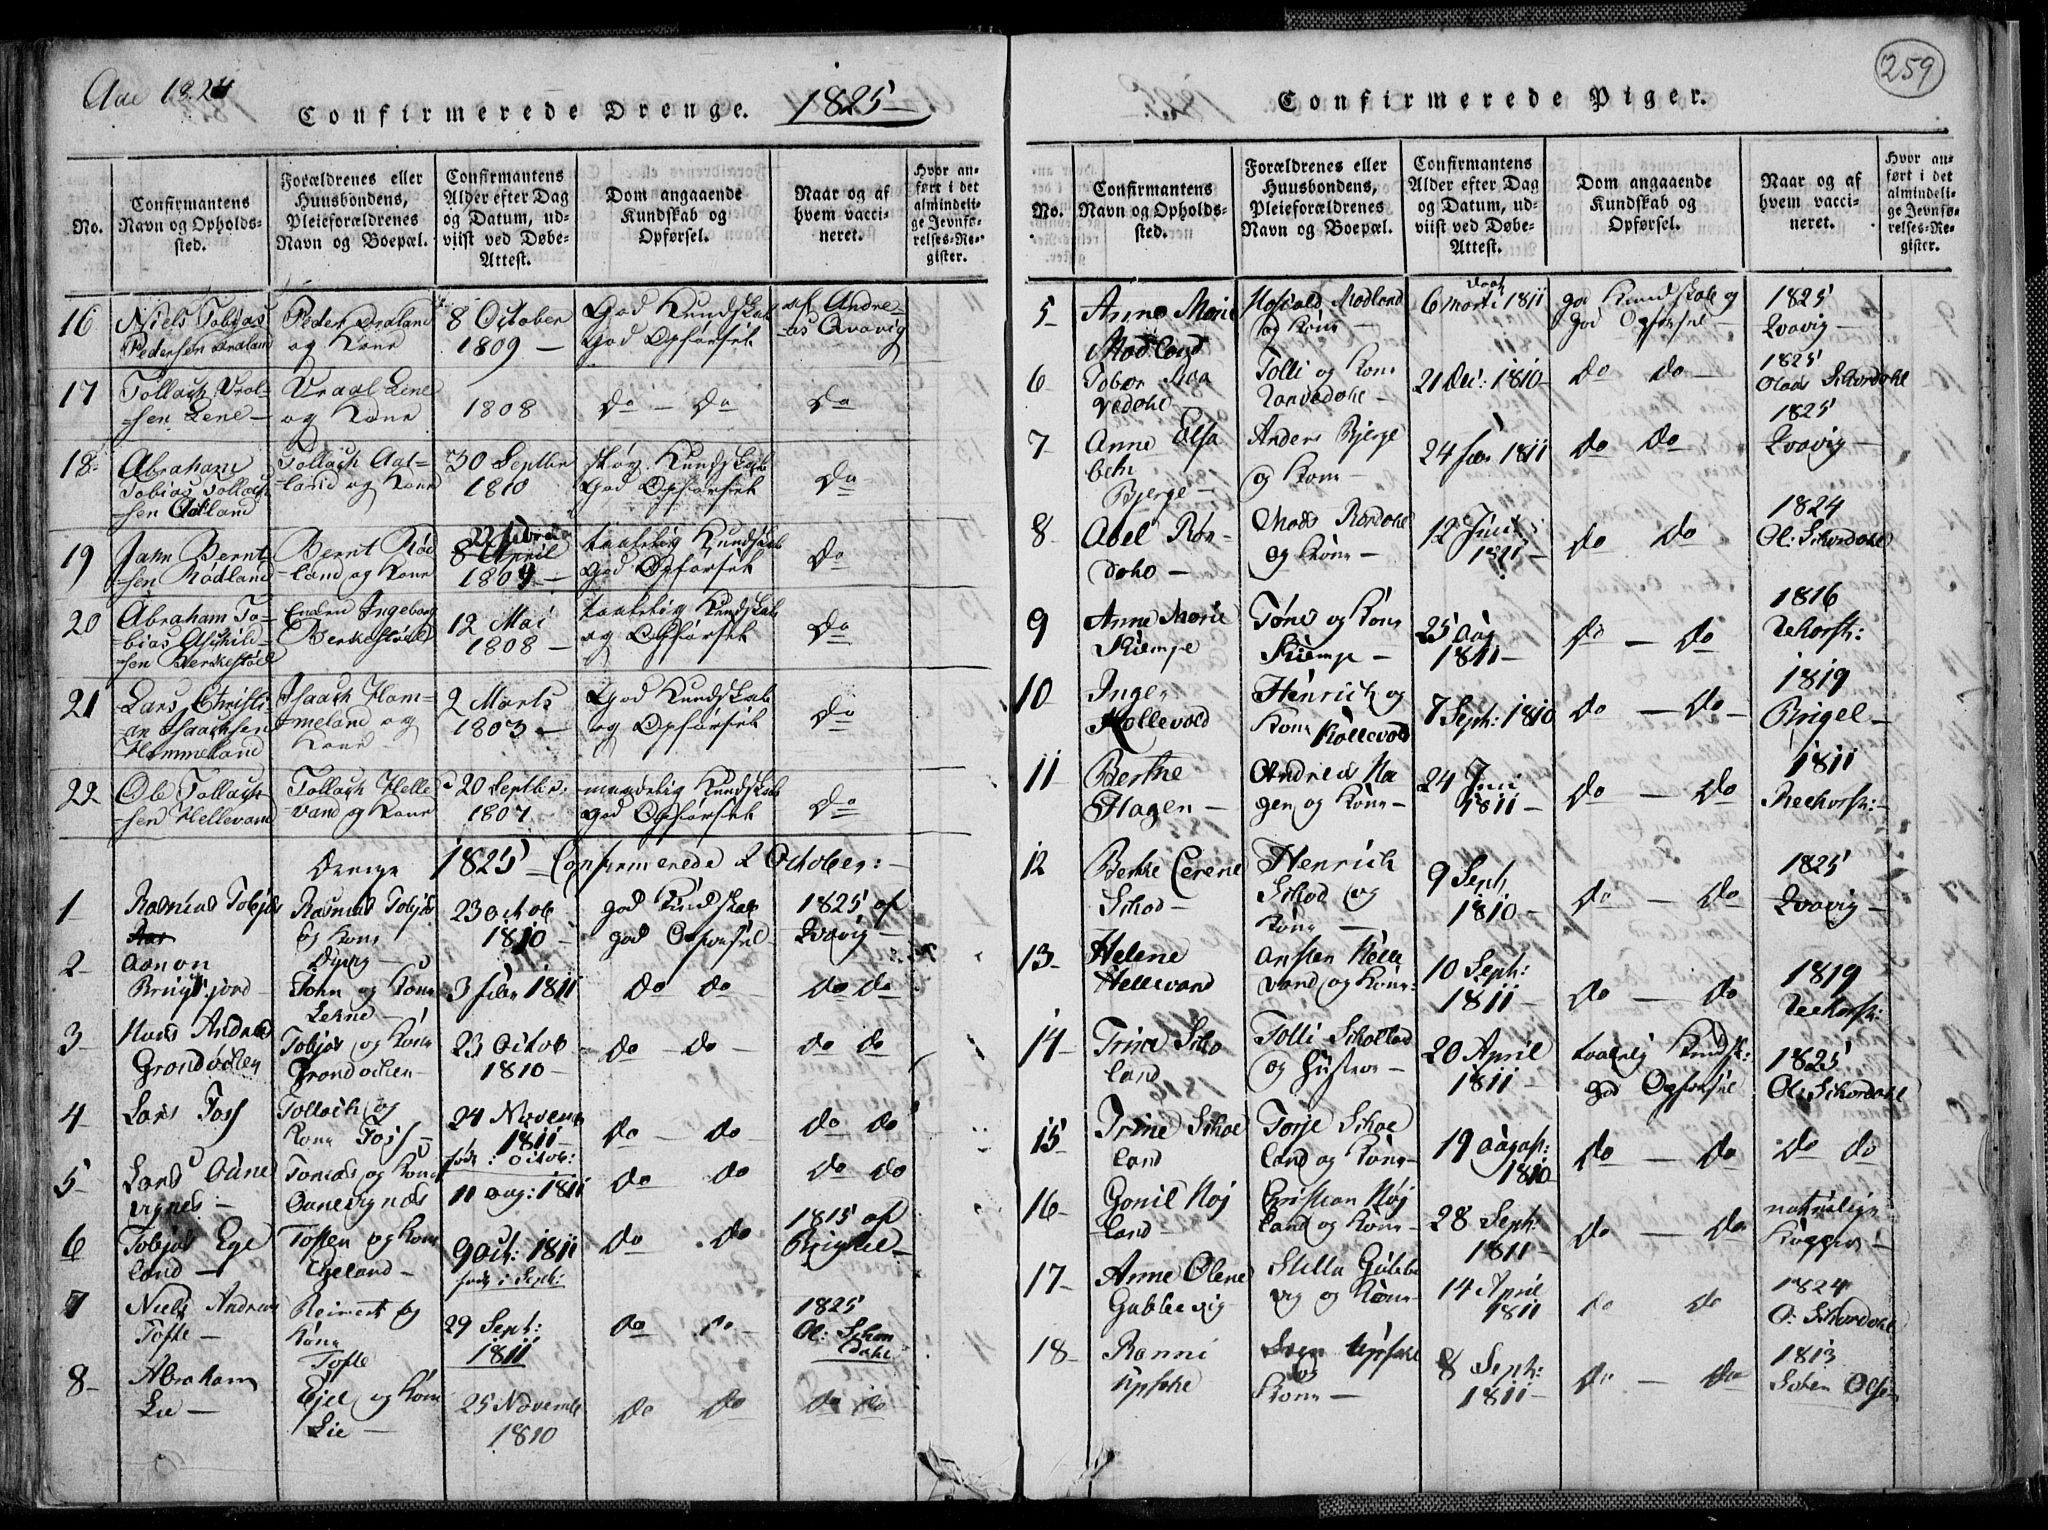 Aar 1824
Confirmerede Drenge. 1825
No.
Confirmantens
Navn og Opholds-
sted.
Forældrenes eller
Huusbondens,
Pleieforældrenes
Navn og Boepæl.
Confirmantens
Alder efter Dag
og Datum, ud-
viist ved Døbe-
Attest.
Dom angaaende
Kundskab og
Opførsel.
Naar og af
hvem vacci-
neret.
Hvor an-
ført i det
almindeli-
ge Jevnfø-
relses-Re-
gister.
16
Niels Tobias
Pedersen
Peder
og Kone
8 October
1809
God Kundskab
God Opførsel
af Andre-
as Qvavig
17
Tollach Vrol-
sen Lene
Vraal Lene
og Kone
1808
Do Do
Do
18
Abraham
Tobias Tollach-
sen Aatland
Tollach Aat-
land og Kone
30 Septbr
1810
Kundskab
God Opførsel
Do
19
Jahn Bernt-
sen Rødland
Bernt Rød
land og Kone
8 April
1809
taalelig Kundskab
God Opførsel
Do
20
Abraham To-
bias Aschild-
sen Berkestøel
Enken Ingeborg
Berkestøel
12 Mai
1808
taalelig Kundskab
og Opførsel
Do
21
Lars Christi-
an Isaachsen
Hammeland
Isaach Ham-
meland og
Kone
2 Marts
1803
God Kundskab
og Opførsel
Do
22
Ole Tollach-
sen Hellevand
Tollach Helle
vand og Kone
20 Septbr:
1807
maadelig Kundskab
god Opførsel
Do
Drenge 1825 Confirmerede 2 October:
1
Rasmus Tobjøs
Rasmus Tobjøs
og Kone
23 Octob
1810
god Kundskab
god Opførsel
1825 af
Qvavig
2
Aanon
John og Kone
3 Febr 1811
Do Do
Do Do
3
Hans Andreas
Grondvolen
Tobjøs og Kone
Grondvolen
23 Octob
1810
Do Do
Do Do
4
Lars Foss
Tollach og
Kone Foss
24 Novemb
1811
Do Do
Do Do
5
Lars Oune
vignes
Tomas og Kone
Ounevignes
11 aug: 1811
Do Do
Do Do
6
Tobjøs Ege
land
Tosten og Kone
Egeland
9 Oct: 1811
Do Do
1815 af
7
Niels Andreas
Tofte
Reinert og
Kone
Tofte
29 Sept:
1811
Do Do
1825
8
Abraham
Lie
Ejel og Kone
Lie
25 Novemb
1810
Do Do
Do Do
259
Confirmerede Piger.
No.
Confirmantens
Navn og Opholds-
sted.
Forældrenes eller
Huusbondens,
Pleieforældrenes
Navn og Boepæl.
Confirmantens
Alder efter Dag
og Datum, ud-
viist ved Døbe-
Attest.
Dom angaaende
Kundskab og
Opførsel.
Naar og af
hvem vacci-
neret.
Hvor an-
ført i det
almindeli-
ge Jevnfø-
relses-Re-
gister.
5
Anne Marie
Modland
Modland
og Kone
6 Marti 1811
god Kundskab og
god Opførsel
1825
Qvavig
6
Tobor Raa
vedohl
Tolli og Kone
21 Dec: 1810
Do Do
1825
Olaas Schordohl
7
Anne Elsa
beth
Bjerge
Anders Bjerge
og Kone
24 1811
Do Do
1825
Qvavig
8
Abel Røn
dohl
Mads
og Kone
12 Juni
1811
Do Do
1824
Ol: Schordohl
9
Anne Marie
Skiempe
Tønes og Kone
Skiempe
25 Aug
1811
Do Do
1816
10
Inger
Kollevold
Henrich og
Kone Kollevold
7 Sept: 1810
Do Do
1819
Bringel
11
Berthe
Hagen
Andreas Ha
gen og Kone
24 Juni
1811
Do Do
1811
12
Berthe Cerene
Schod
Henrich
Schod og
Kone
9 Sept,
1810
Do Do
1825
Qvavig
13
Helene
Hellevand
Helle
vand og Kone
10 Sept:
1811
Do Do
1819
14
Trine Scho
land
Tolli
og Hustrue
20 April
1811
taalelig Kundsk:
god Opførsel
1825
Ol: Schordohl
15
Trine Schoe
land
Torje Schoe
land og Kone
19 August:
1810
Do Do
Do Do
16
Gonil Høj
land
Christian Høj
land og Kone
28 Sept:
1811
Do Do
naturlige
Kopper
17
Anne Olene
Gabbevig
Gabbe
vig og Kone
14 April
1811
Do Do
1824
O: Schordohl
18
Ranni
Upsohl
Upsohl
og
Kone
8 Sept:
1811
Do Do
1813
Olsen